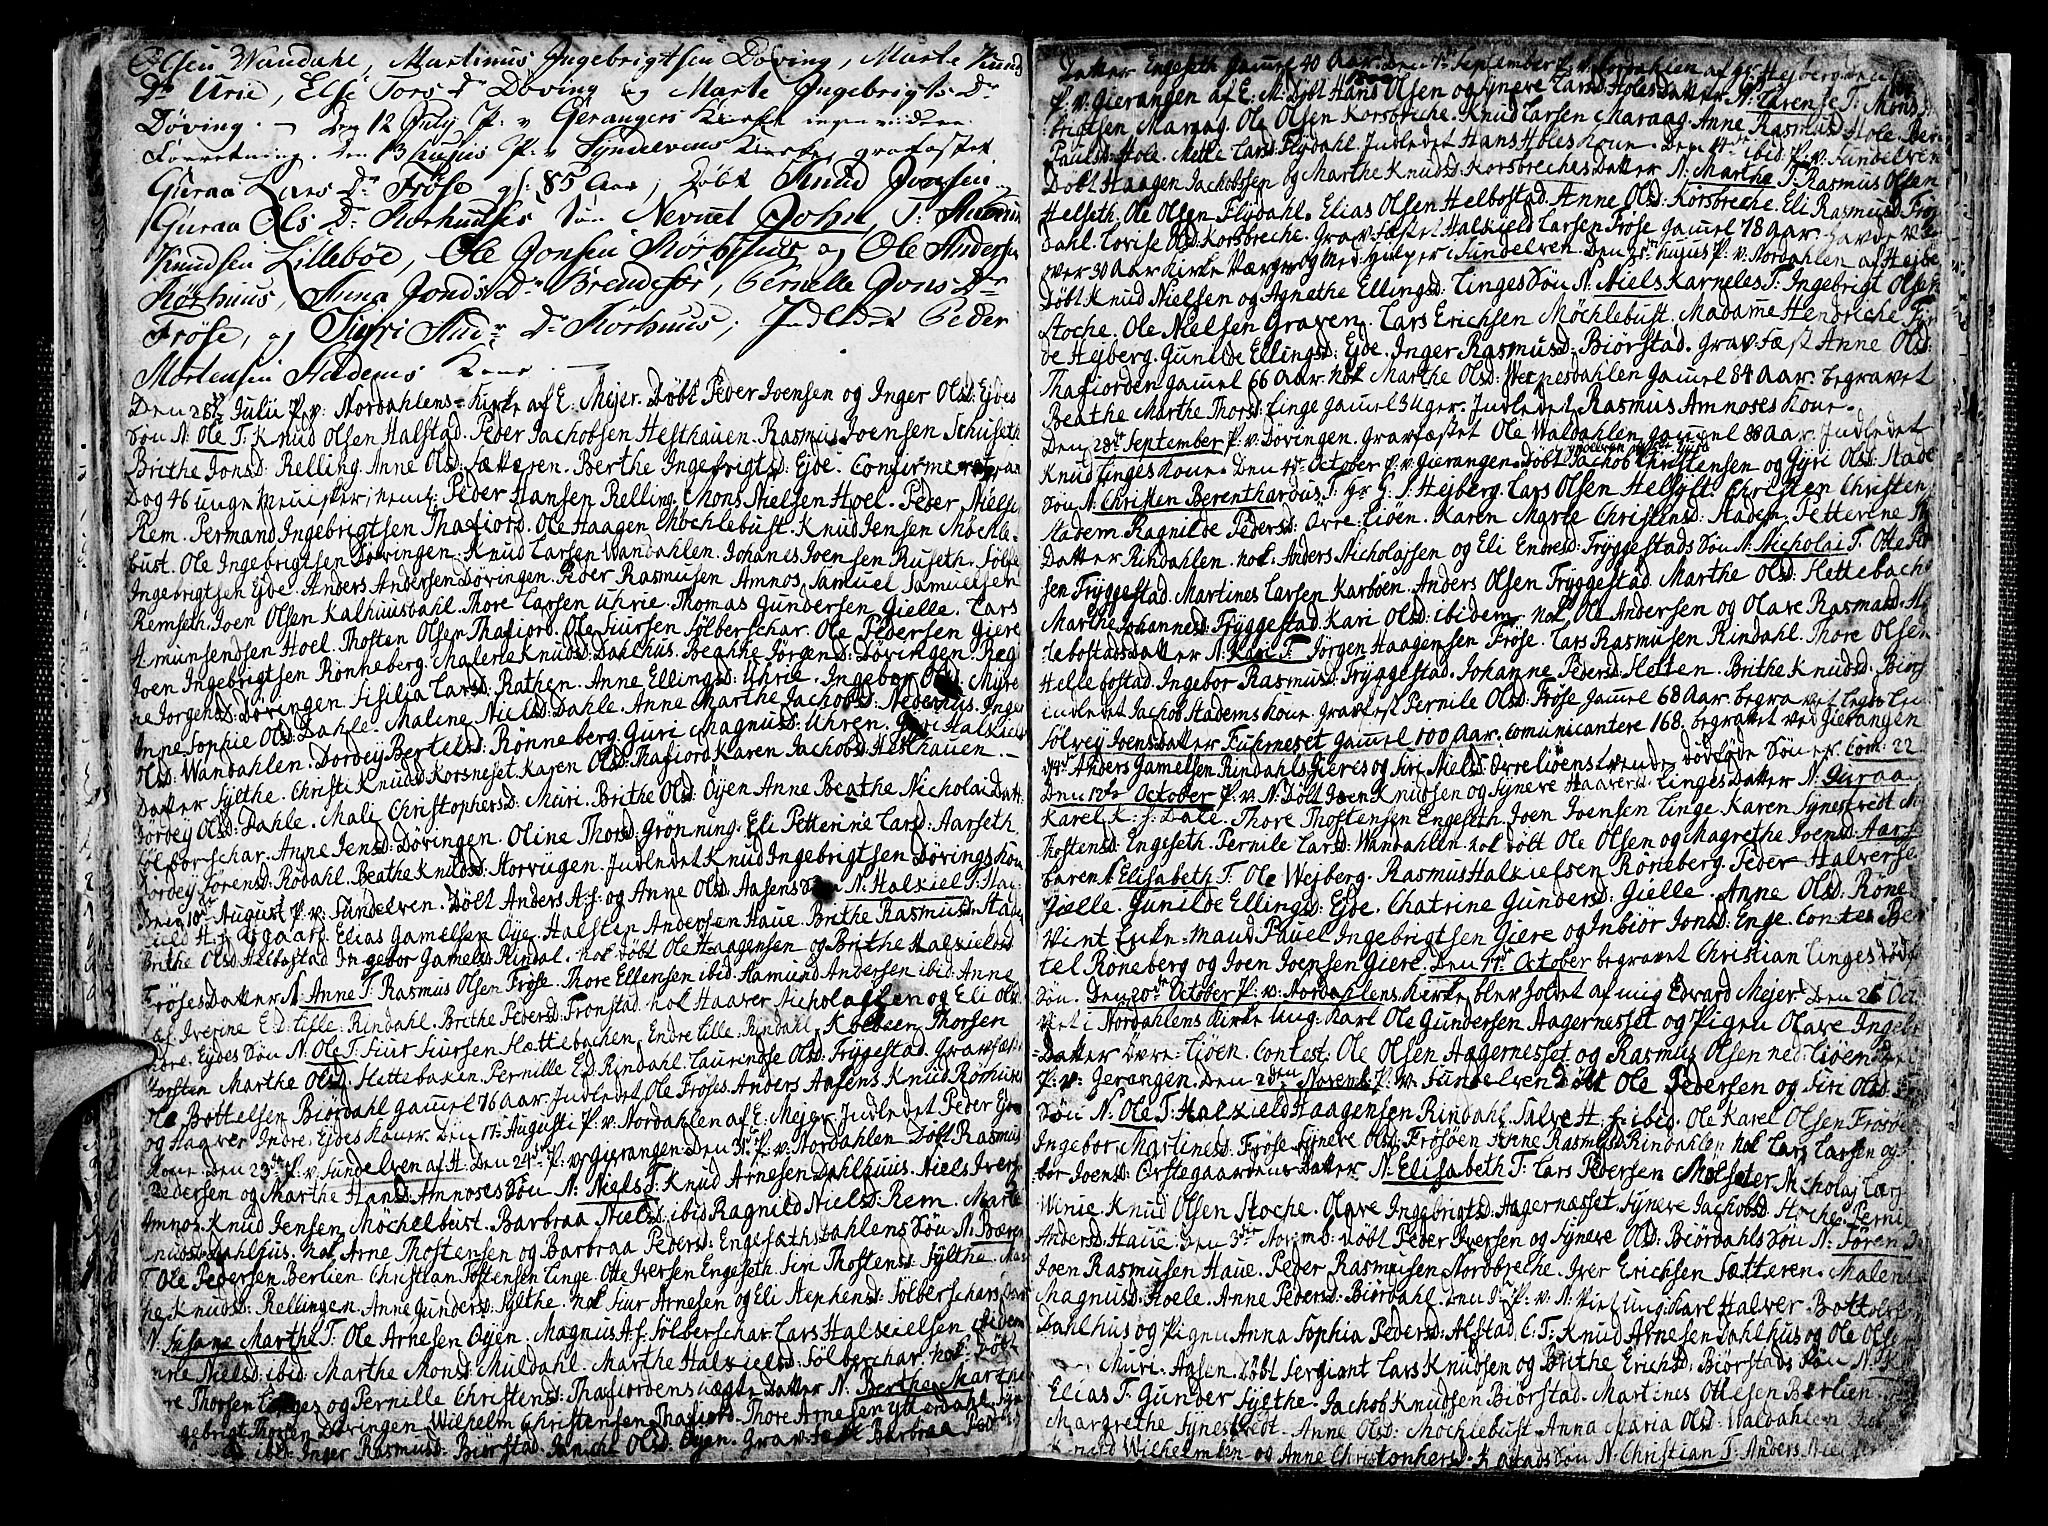 Olsen Wandahl, Martinus Ingebrigtsen Döving, Marte Knuds
Dr Urie, Else Tors Dr Döving og Marte Ingebrigts Dr
Döving. Den 12 July P. v Gerangers Kirke ingen videre
Forretning. Den 13 hujus P. v Syndelvens Kirke, grafæstet
Guraa Lars Dr Fröse gl: 85 Aar, Döbt Knud Jonsen
Guraa Ols Dr Korhuuses Sön Nevnet John, T:
Knudsen Lilleböe, Ole Jonsen Körhuus og Ole Andersen
Körhuus, Anna Jonsds Dr Brendeför, Pernelle Jons Dr
Fröse, og Siyri And: Dr Korhuus, Indledet Peder
Mortensen Stadems Kone.
Den 28de Julii P. v: Nordahlens Kirke af E: Mejer. Döbt Peder Joensen og Inger Olsd: Ejdes
Sön N: Ole T: Knud Olsen Halstad. Peder Jachobsen Hesthauen. Rasmus Joensen Schuseth
Brithe Jonsd: Relling. Anne Olsd: Sætteren. Berthe Ingebrigtsd: Ejde. Confirmeret
Dag 46 unge Mennisker; neml: Peder Hansen Relling. Mons Nielsen Hoel. Peder Nielsen
Rem. Permand Ingebrigtsen Thafiord. Ole Haagen Möchlebust. Knud Jensen Möchle-
bust. Ole Ingebrigtsen Dövingen. Knud Larsen Wandahlen. Johanes Joensen Ruseth.
Ingebrigtsen Ejde. Anders Andersen Dövingen. Peder Rasmusen Amnos. Samuel Samuelsen
Remseth. Joen Olsen Kalhuusdahl. Thore Larsen Uhrie. Thomas Gundersen Gielle. Lars
Amunsendsen Hoel. Thosten Olsen Thafiord. Ole Siursen Sölberschar. Ole Pedersen Giere
Joen Ingebrigtsen Rönneberg. Malene Knudsd: Dahlhus. Beathe Jörgend: Dövingen.
ne Jorgensd: Dövingen Sisilia Larsd: Rathen. Anne Ellingsd: Uhrie. Ingebor Olsd: Myre
Anne Sophie Olsd: Dahle. Maline Nielsd: Dahle. Anne Marthe Jachobsd: Nederhus. Inger
Olsd: Wandahlen. Dordey Bertelsd: Rönneberg. Guri Magnusd: Uhren.
Datter Sylthe. Christi Knudsd: Korsneset. Karen Olsd: Thafiord. Karen Jachobsd: Hesthauen.
Dorbey Olsd: Dahle. Mali Christophersd: Muri. Brithe Olsd: Öyen. Anne Beathe Nicholai Datt:
Sölberschar. Anne Jensd: Dövingen. Oline Thorsd: Grönning. Eli Petterine Larsd: Aarseth.
Dorbey Sörensd: Rödahl. Beathe Knudsd: Storvugen. Indledet Knud Ingebrigtsen Dövings Kone
Den 10de August P. v: Sundelven. Döbt Anders A.s: og Anne Olsd: Aasens Sön N: Halkiel T:
Elias Gamelsen Öye. Halsten Andersen Haue. Brithe Rasmusd:
Brithe Olsd: Helbostad. Ingebor Gamelsd: Rindal. nok Döbt Ole Haagensen og Brithe Halkielsd:
Fröses Datter N: Anne T: Rasmus Olsen Fröse. Thore Ellensen ibid: Hamund Andersen ibid: Anne
Iverine E.D: Lille: Rindahl. Brithe Pedersd: Fronstad. nok Haaver Nicholajsen og Eli Olsd:
Ejdes Sön N: Ole T: Siur Siursen Slettebachen. Endre Lille: Rindahl. Kolbeen Thorsen
Marthe Olsd: Hettebaken. Pernille E.d: Rindahl. Laurendse Olsd: Tryggestad. Gravfæst
Ole Bottelsen Biördahl gamel 76 Aar. Indledet Ole Fröses Anders Aasens Knud Römuses
og Haaver Indre: Ejdes Koner. Den 17de Augusti P. v: Nordahlen af E: Mejer. Indledet Peder Ejdes
Kone. Den 23de P. v: Sundelven af H. Den 24de P. v: Gierangen. Den 31te P. v: Nordahlen. Döbt Rasmus
Pedersen og Marthe Hansd: Amnoses Sön N: Niels T: Knud Arnesen Dahlhuus. Niels Ivers:
Amnos. Knud Jensen Möchelbust. Barbraa Nielsd: ibid. Ragnild Nielsd: Rem. Marte
Knudsd: Dahlhus. nok Arne Thostensen og Barbraa Pedersd: Engesæthsdahlens Sön N: Bæren
T: Ole Pedersen Berlien. Christian Tostensen Linge. Otte Iversen Engeseth. Siri Thostensd: Sylthe.
he Knudsd: Rellingen. Anne Gundersd: Sylthe. nok Siur Arnesen og Eli Stephensd: Sölberschars
N: Susane Marthe T: Ole Arnesen Öyen. Magnus A.s: Sölberschar. Lars Halkielsen ibidem
nne Nielsd: ibid. Marthe Monsd: Muldahl. Marthe Halkielsd: Sölberschar. nok Döbt
re Thorsen Linges og Pernille Christensd: Thafiordens uægte Datter N: Berthe Martine
gebrigt Thorsen Dövingen. Wilhelm Christensen Thafiord. Thore Arnesen Ytterdahl.
ibid: Inger Rasmusd: Biorstad. Janiche Olsd: Öyen. Gravfæst Barbraa Peds
Datter Engeseth gamel 40 Aar. Den 7de September P. v: Nordahlen af Hr: Hejberg. Den
P. v: Gierangen af E. M. Döbt Hans Olsen og Syneve Larsd: Holes Datter N: Larense T: Mons
Maraag. Ole Olsen Korsbreche. Knud Larsen Maraag. Anne Rasmusd: Hole.
Paulsd: Hole. Mette Larsd: Flydahl. Indledet Hans Holes Kone. Den 14de ibid: P. v: Sundelven
Döbt Haagen Jachobsen og Marthe Knudsd: Korsbreches Datter N: Marthe T: Rasmus Olsen
Helseth. Ole Olsen Flydahl. Elias Olsen Helbostad. Anne Olsd: Korsbreche. Eli Rasmusd: Fröy-
dahl. Lovise Olsd: Korsbreche. Gravfæstet Halkield Larsen Fröse gamel 78 Aar. havde væ
over 30 Aar Kirke Værge og Medhielper i Sundelven. Den 21de hujus P. v: Nordahlen af Hejbe
Döbt Knud Nielsen og Agnethe Ellingsd: Linges Sön N: Niels Karneles T: Ingebrigt Olsen
Stoche. Ole Nielsen Graven. Lars Erichsen Möchlebust. Madame Hendriche
de Hejberg. Gunilde Ellingsd: Ejde. Inger Rasmusd: Biorstad. Gravfæst Anne Olsd:
Thafiorden gamel 66 Aar. nok Marthe Olsd: Werpesdahlen gamel 84 Aar. begravet
Beathe Marthe Thorsd: Linge gamel 3 Uger. Indledet Rasmus Amnoses Kone.
Den 28de September P. v: Dövingen. Gravfæstet Ole Waldahlen gamel 88 Aar. Indledet
Knud Linges Kone. Den 4de October P. v: Gierangen. Döbt Jachob Christensen og Gjri Olsd: Stade
Sön N: Christen Berenthardus T: Hr: G. S. Hejberg. Lars Olsen Helset. Christen Christen:
Stadem. Ragnilde Pedersd: Övre: Liöen. Karen Marte Christensd: Stadem. Petterine
Datter Rindahlen. nok Anders Nicholajsen og Eli Endresd: Tryggestads Sön N: Nicholai T: Otte
sen Tryggestad. Martines Larsen Karboen. Anders Olsen Tryggestad. Marthe Olsd: Hettebach
Marthe Johannesd: Tryggestad. Kari Olsd: ibidem. nok Ole Andersen og Olave Rasmusd:
lebostads Datter N: Kari T: Jörgen Haagensen Fröse. Lars Rasmusen Rindahl. Thore Olsen
Hellebostad. Ingebor Rasmusd: Tryggestad. Johanne Pedersd: Hetten. Brithe Knudsd:
indledet Jachob Stadems Kone. Gravfæst Pernile Olsd: Fröse gamel 68 Aar. begravet
Solvey Joens Datter Fuhrneset gamel 100 Aar. Comunicantere 168. begravet ved Gierangen
Anders Gamelsen Rindahls Gieres og Siri Nielsd: Övre Liöens tvende dödföde Sönner. Com: 22
Den 12te October P. v: N: Döbt Joen Knudsen og Syneve Haaversd: Linges Datter N: Guraa
Karel K. s: Dale. Thore Thostensen Engeseth. Joen Joensen Linge. Karen Synestvedt
Thostensd: Engeseth. Pernile Larsd: Wandahlen nok döbt Ole Olsen og Magrethe Joensd: Aars
baren Elisabeth T: Ole Wejberg. Rasmus Halkielsen Röneberg. Peder Halverse
Gielle. Gunilde Ellingsd: Ejde. Chatrine Gundersd: Gielle. Anne Olsd: Röne
Vient Enke-mand Pauel Ingebrigtsen Giere og Inbior Jonsd: Enge. Contes: Ber
tel Röneberg og Joen Joensen Giere. Den 17de October begravet Christian Linges
Sön. Den 20de October P. v: Nordahlens Kirke blev holdet af mig Edvard Mejer. Den 26 Oct
viet i Nordahlens Kirke Ung: Karl Ole Gundersen Aagernesset og Pigen Olave Ingeb
Datter Övre: Liöen. Contest: Ole Olsen Aagernesset og Rasmus Olsen ned: Liöen.
P. v: Gerangen. Den 2den Novemb: P. v: Sundelven Döbt Ole Pedersen og Siri Olsd:
Sön N: Ole T: Halkield Haagensen Rindahl. Salve H. s: ibid. Ole Karel Olsen Frösoe
Ingebor Martinesd: Fröse. Syneve Olsd: Frösoen. Anne Rasmusd: Rindahlen. nok Lars Larsen og
bor Joensd: Orstegaardens Datter N: Elisabeth T: Lars Pedersen Molseter. Nicholaj Lars
Winie. Knud Olsen Stoche. Olave Ingebrigtsd: Aagernæsset. Syneve Jachobsd: Stoche. Pernil
Andersd: Haue. Den 3die Novemb: Döbt Peder Iversen og Syneve Olsd: Biördahls Sön N: Sören
Joen Rasmusen Haue. Peder Rasmusen Nordbreche. Iver Erichsen Sætteren. Malena
Magnusd: Hoele. Anne Pedersd: Biördahl. Den P. v: N: Viet Ung: Karl Halver Bottolfs
Dahlhus og Pigen Anna Sophia Pedersd: Alstad. C. T: Knud Arnesen Dahlhus og Ole Olsen
Muri. Döbt Sergiant Lars Knudsen og Brithe Erichsd: Biörstads Sön N:
Elias T: Gunder Sylthe. Jachob Knudsen Biörstad. Martines Ottesen Berlien.
Margrethe Synestvedt. Anne Olsd: Möchlebust. Anna Maria Olsd: Waldahlen.
Wilhelmsen og Anne Christophersd: Alstads Sön N: Christian T: Anders Niel